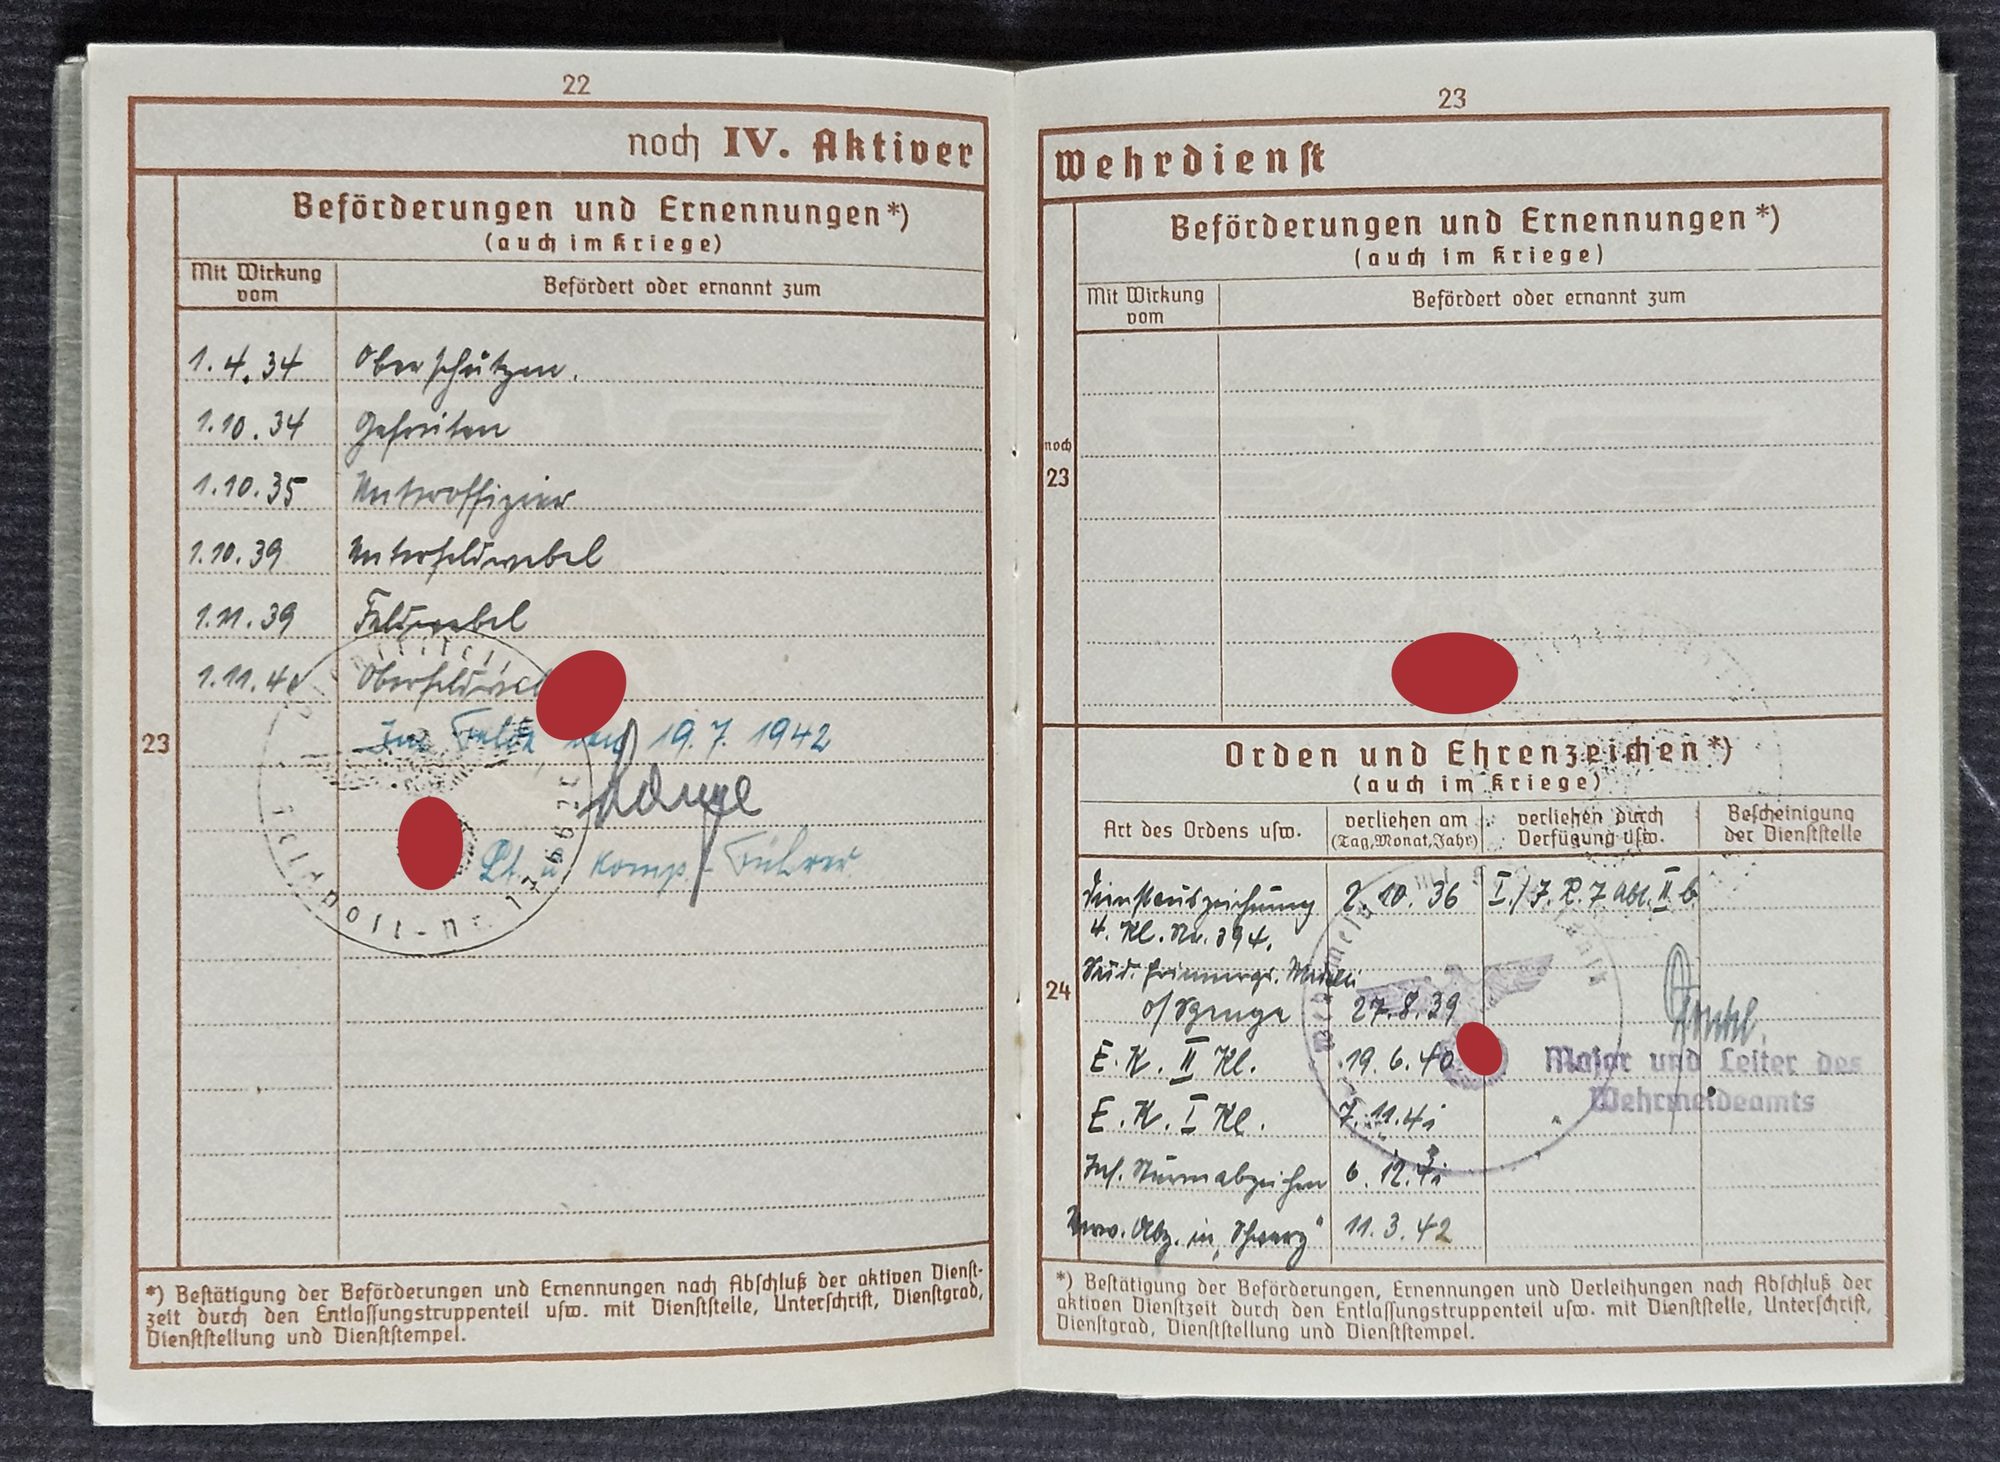 22
noch IV. Aktiver
Beförderungen und Ernennungen*)
(auch im Kriege)
Mit Wirkung
vom
Befördert oder ernannt zum
1.4.34 Oberschützen.
1.10.34 Gefreiten
1.10.35 Unteroffizier
1.10.39 Unterfeldwebel
1.11.39 Feldwebel
1.11.40 Oberfeldwebel
23
Im Felde, den 19.7.1942
Lange
Lt. u. Komp.-Führer
*) Bestätigung der Beförderungen und Ernennungen nach Abschluß der aktiven Dienst-
zeit durch den Entlassungstruppenteil usw. mit Dienststelle, Unterschrift, Dienstgrad,
Dienststellung und Dienststempel.
23
Wehrdienst
Beförderungen und Ernennungen*)
(auch im Kriege)
Mit Wirkung
vom
Befördert oder ernannt zum
noch
23
Orden und Ehrenzeichen*)
(auch im Kriege)
Art des Ordens usw.
verliehen am
(Tag, Monat, Jahr)
verliehen durch
Verfügung usw.
Bescheinigung
der Dienststelle
Dienstauszeichnung 2.10.36 I./J.R.7 Abt. II b
4. Kl. Nr. 394.
24
Sud. Erinnergs. Medaille
o/Spange 27.8.39
E.K. II Kl. 19.6.40
Major und Leiter des
Wehrmeldeamts
E.K. I Kl. 7.11.41
Inf. Sturmabzeichen 6.12.41
Verw. Abz. in "Schwarz" 11.3.42
*) Bestätigung der Beförderungen, Ernennungen und Verleihungen nach Abschluß der
aktiven Dienstzeit durch den Entlassungstruppenteil usw. mit Dienststelle, Unterschrift,
Dienstgrad, Dienststellung und Dienststempel.